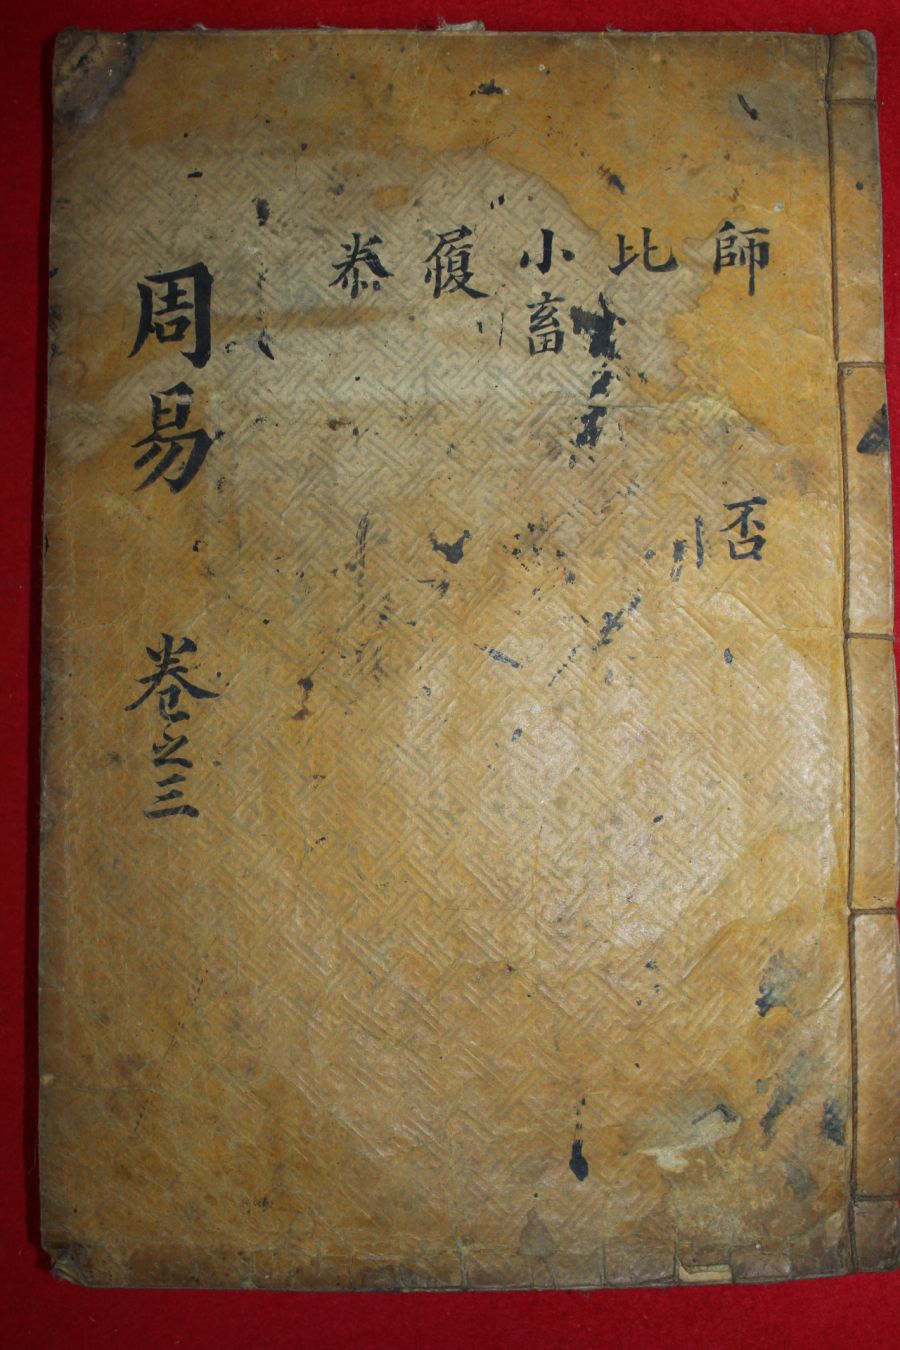 師
比
小畜
履
泰
否
周易 卷之三